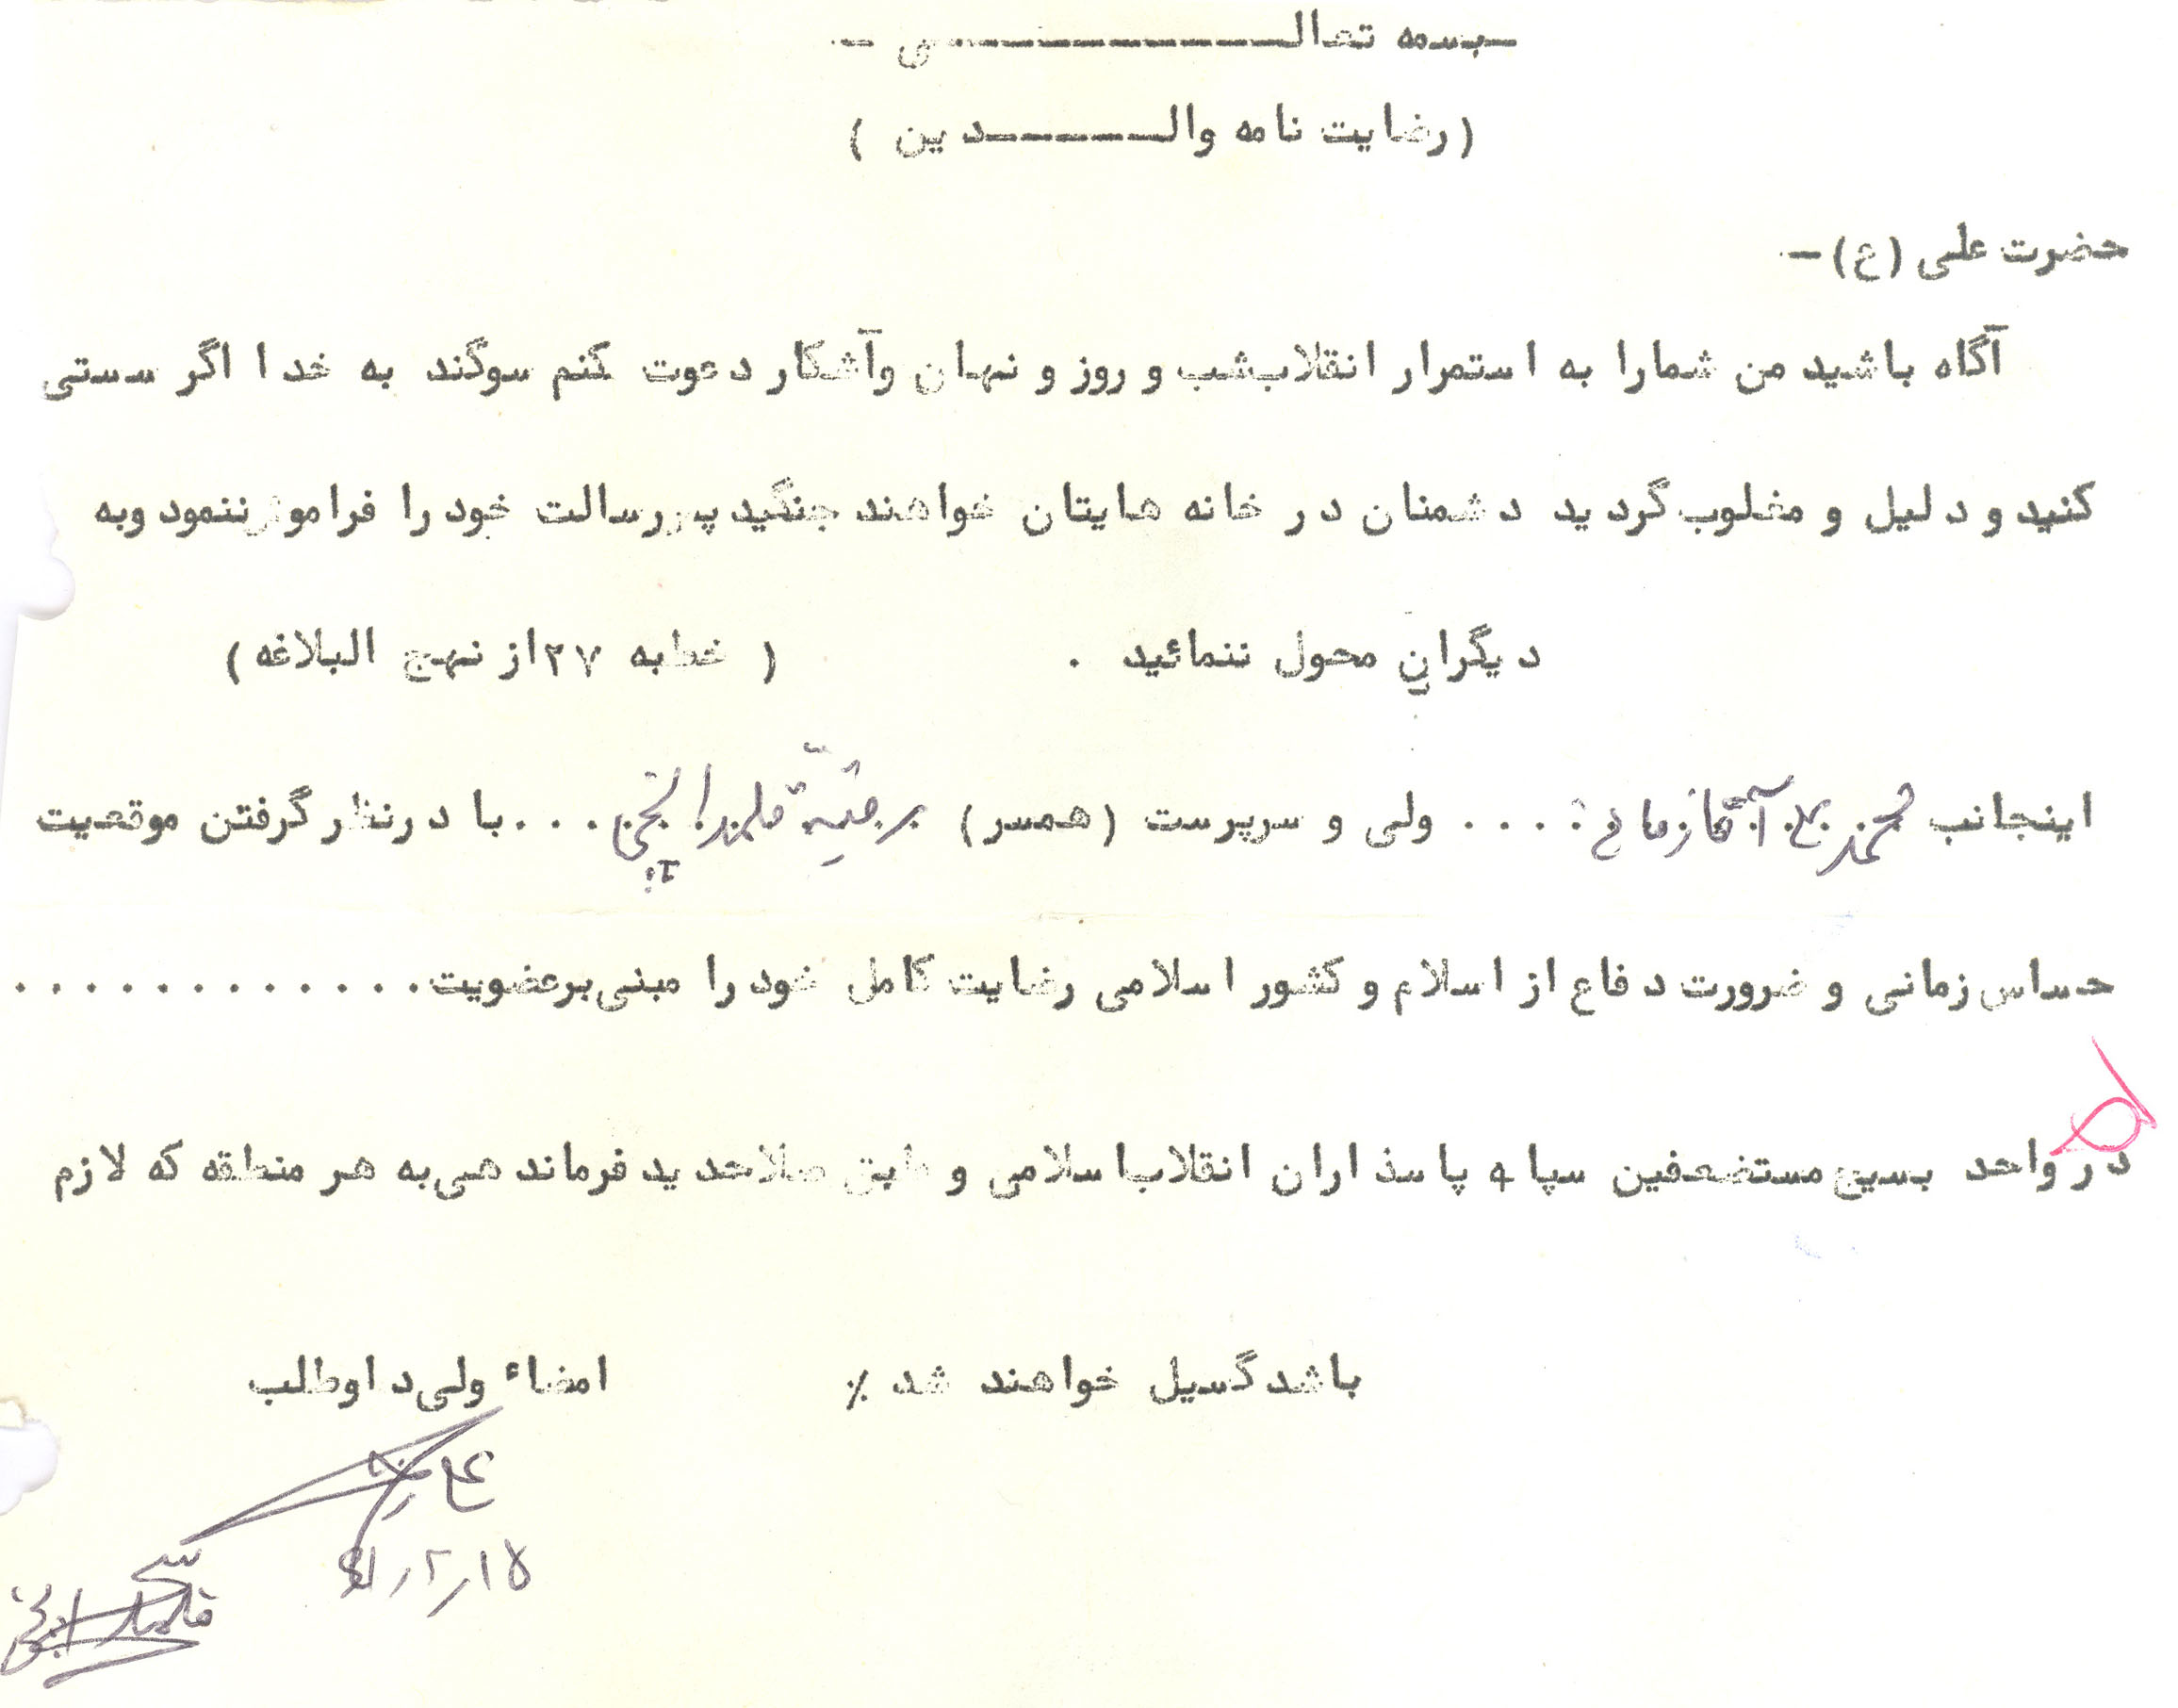 بسمه تعالی
(رضایت نامه والدین)
حضرت علی (ع) -
آگاه باشید من شمارا به استمرار انقلاب شب و روز و نهان وآشکار دعوت کنم سوگند به خدا اگر سستی
کنید و دلیل و مغلوب گردید دشمنان در خانه هایتان خواهند جنگید پس رسالت خود را فراموش ننمود وبه
دیگران محول ننمائید . (خطبه ۲۷ از نهج البلاغه)
اینجانب .... ولی و سرپرست (همسر) ... با درنظر گرفتن موقعیت
حساس زمانی و ضرورت دفاع از اسلام و کشور اسلامی رضایت کامل خود را مبنی بر عضویت............
در واحد بسیج مستضعفین سپاه پاسداران انقلاب اسلامی و طبق صلاحدید فرماندهی به هر منطقه که لازم
باشد گسیل خواهند شد ٪ امضاء ولی داوطلب